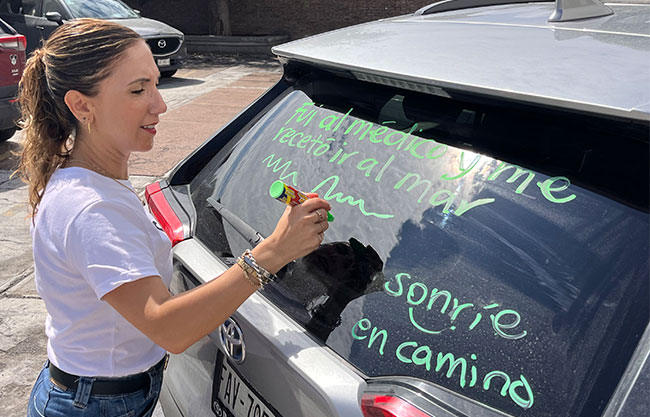 Fui al médico y me
recetó ir al mar
sonríe
en camino
FAV